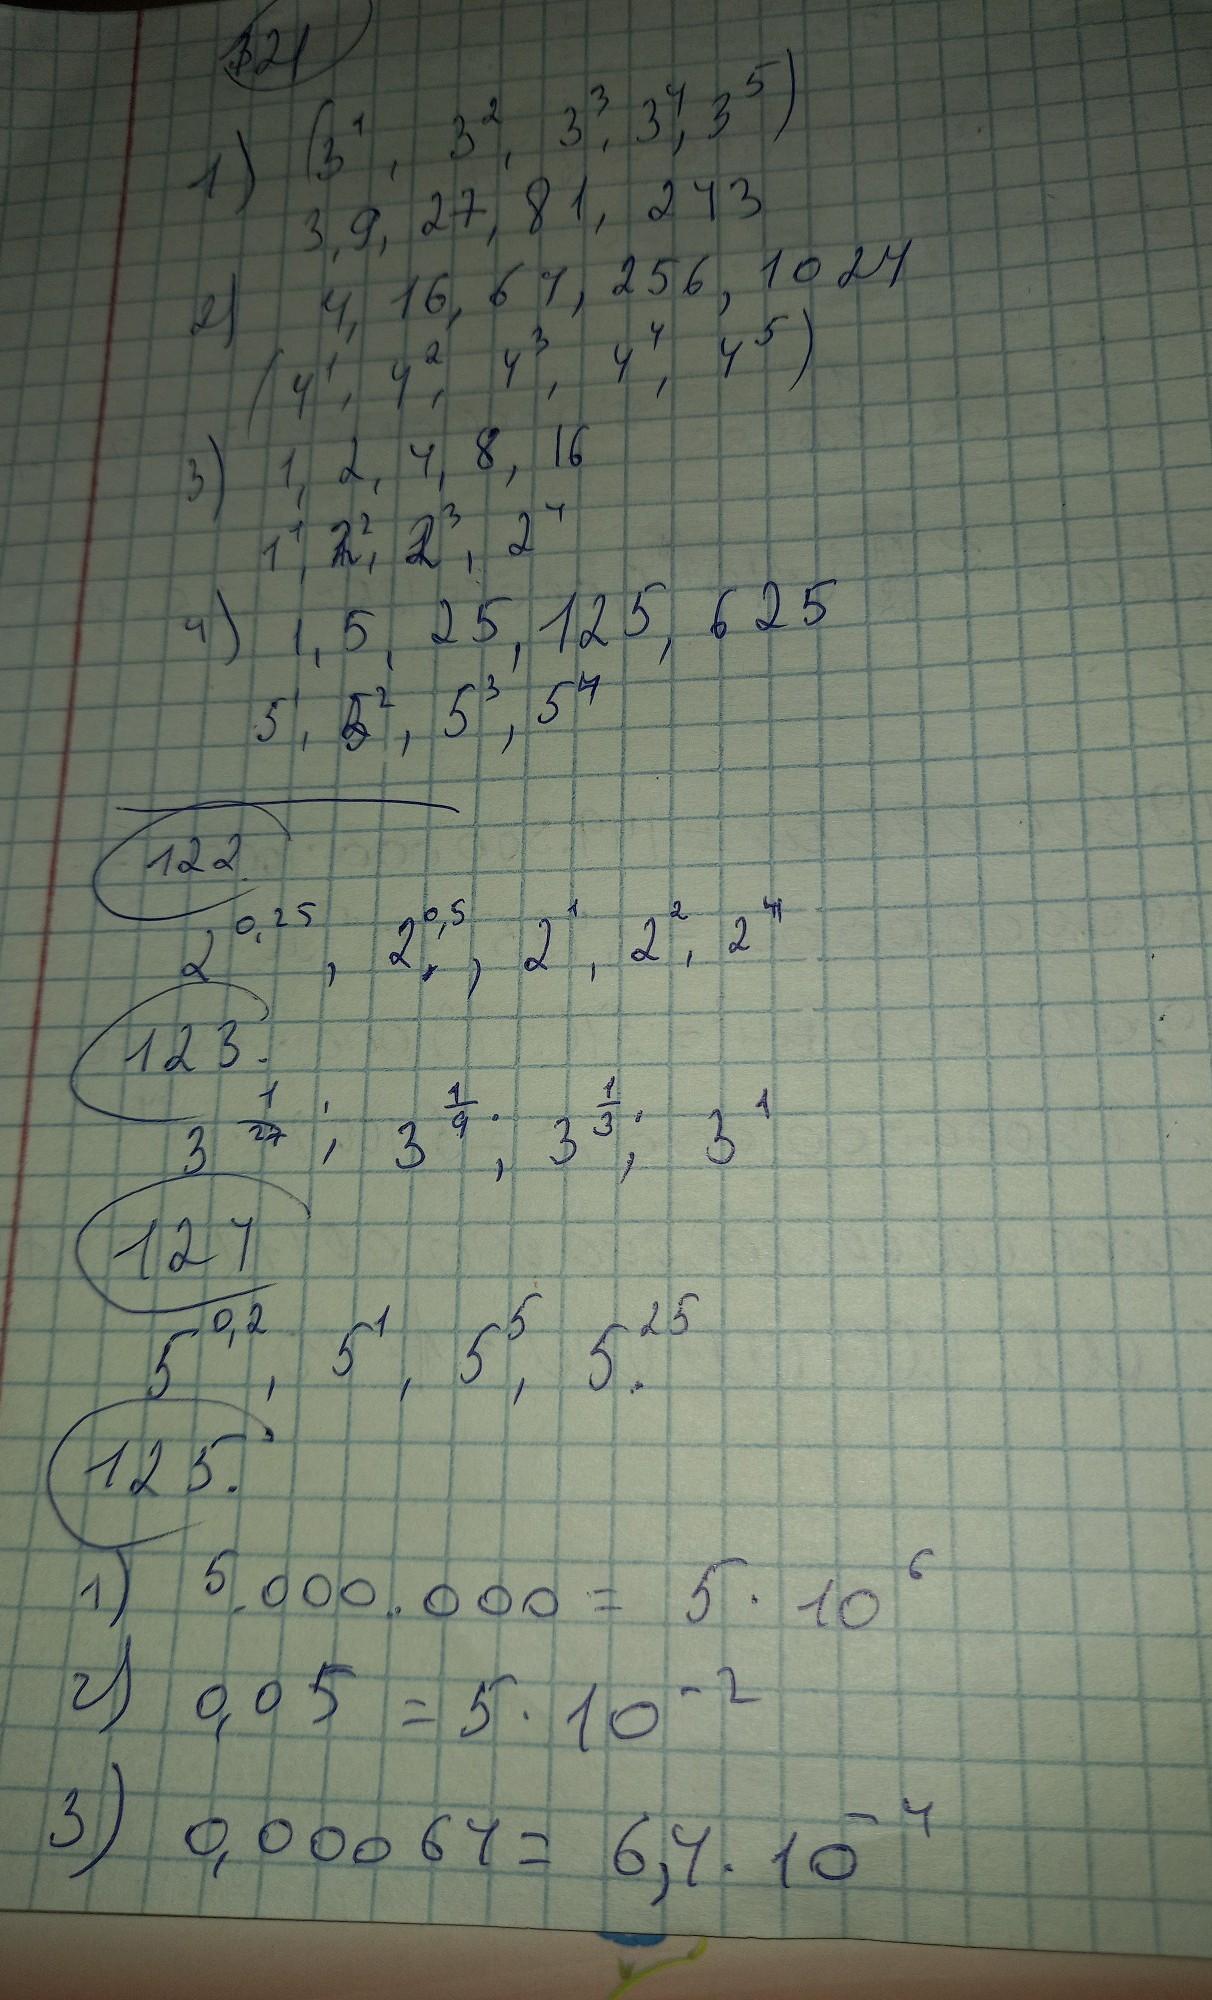 121
1) (3¹, 3², 3³, 3⁴, 3⁵)
3, 9, 27, 81, 243
2) 4, 16, 64, 256, 1024
(4¹, 4², 4³, 4⁴, 4⁵)
3) 1, 2, 4, 8, 16
1¹, 2², 2³, 2⁴
4) 1, 5, 25, 125, 625
5¹, 5², 5³, 5⁴
122.
2^0,25, 2^0,5, 2¹, 2², 2⁴
123.
3^1/27; 3^1/9; 3^1/3; 3¹
124
5^0,2, 5¹, 5⁵, 5²⁵.
125.
1) 5.000.000 = 5 · 10⁶
2) 0,05 = 5 · 10⁻²
3) 0,00064 = 6,4 · 10⁻⁴